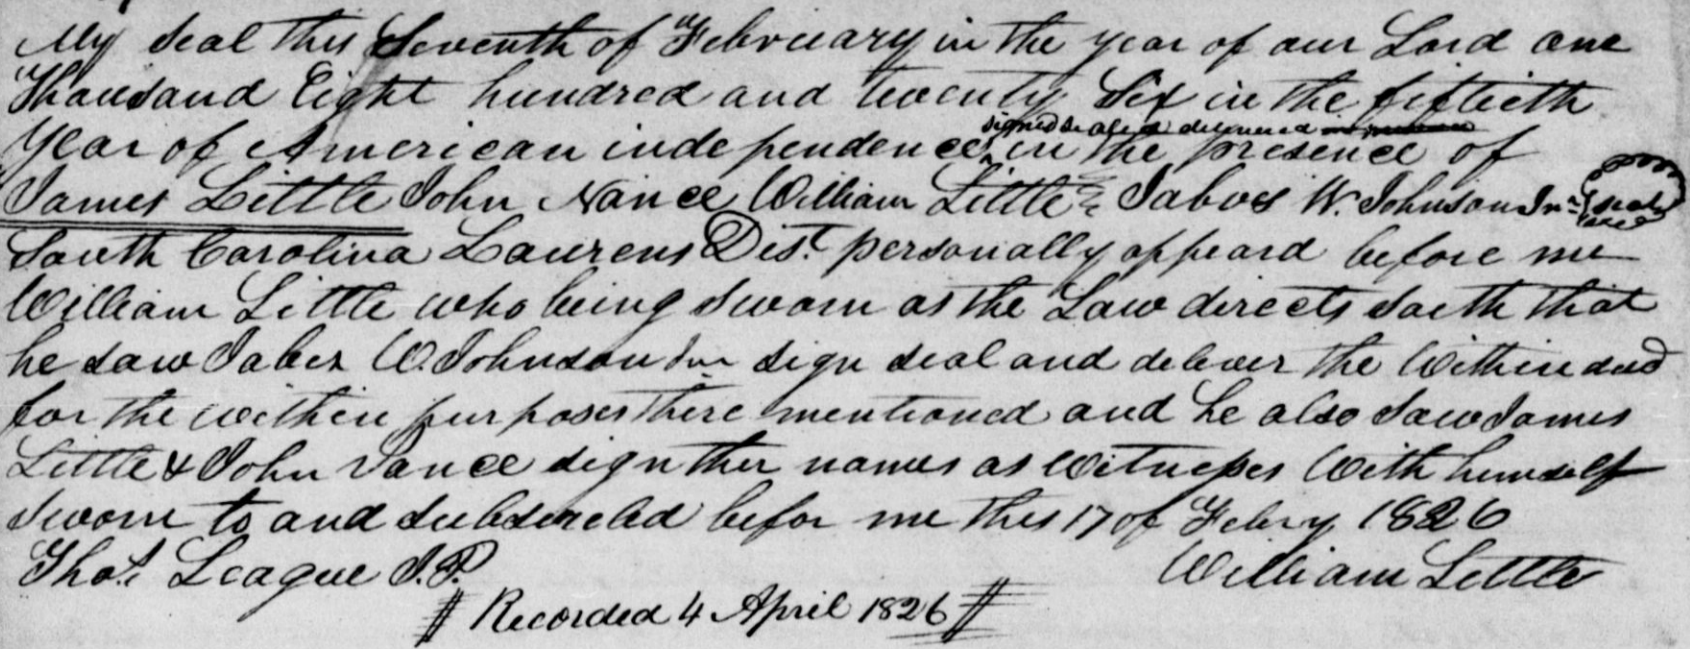 My seal this Seventh of February in the year of our Lord one
Thousand Eight hundred and twenty Six in the fiftieth
signed sealed & delivered
Year of American independence, in the presence of
James Little John Nance William Little Jabos W. Johnson Jnr seal
South Carolina Laurens Dist. personally appeard before me
William Little who being Sworn as the Law directs saith that
he saw Jabes W. Johnson Jnr sign seal and deliver the Within deed
for the within purposes there mentioned and he also saw James
Little & John Nance sign ther names as Witnesses With himself
Sworn to and Subscribed befor me this 17 of Febry 1826
Thos. League J.P. William Little
Recorded 4 April 1826